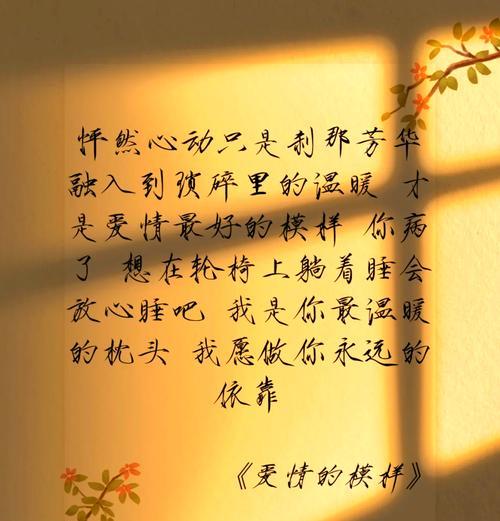 怦然心动只是刹那芳华
融入到琐碎里的温暖 才
是爱情最好的模样 你病
了 想在轮椅上躺着睡会
放心睡吧 我是你最温暖
的枕头 我愿做你永远的
依靠
《爱情的模样》